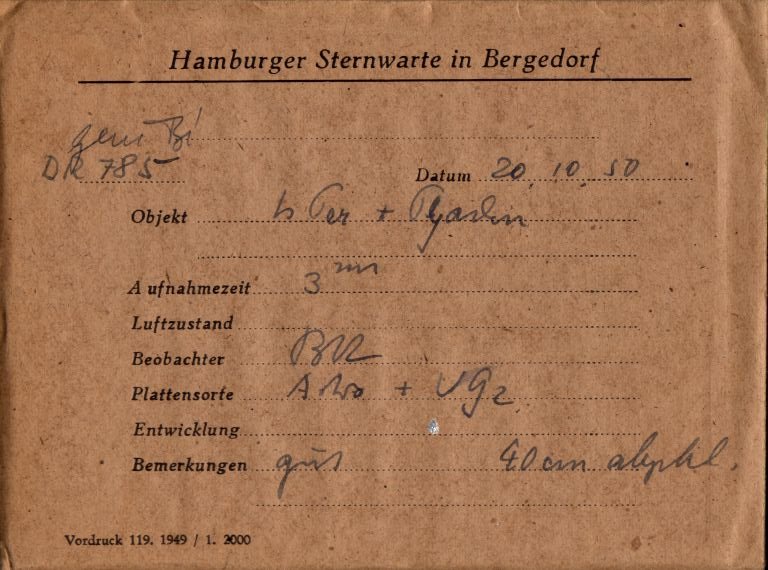 Hamburger Sternwarte in Bergedorf
gem Bí
DR 785
Datum 20.10.50
Objekt h Per +
Aufnahmezeit 3 min
Luftzustand
Beobachter
Plattensorte Astro + UG2
Entwicklung
Bemerkungen gut 40 cm
Vordruck 119. 1949 / 1. 2000